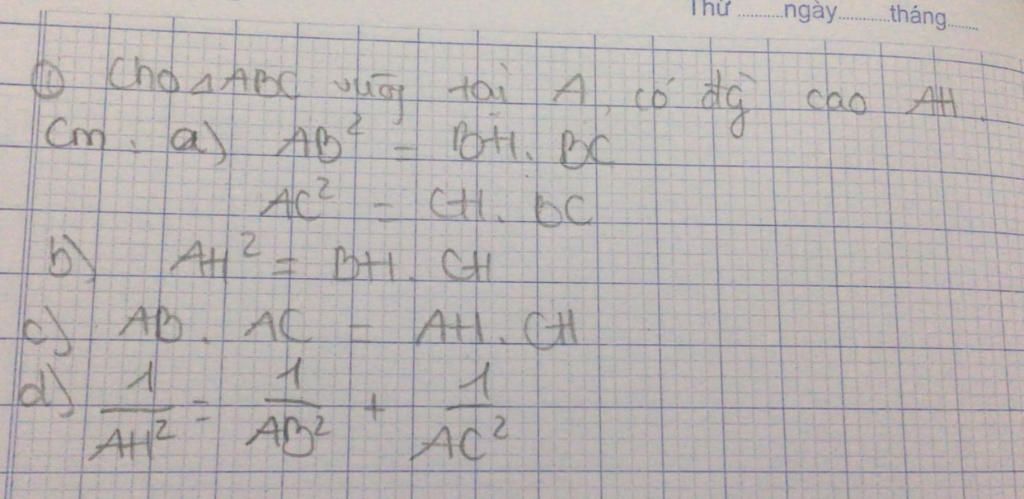 Thứ ngày tháng
① Cho △ABC vuông tại A, có đg cao AH.
Cm. a) AB² = BH. BC
AC² = CH. BC
b) AH² = BH. CH
c) AB. AC = AH. CH
d) 1/AH² = 1/AB² + 1/AC²